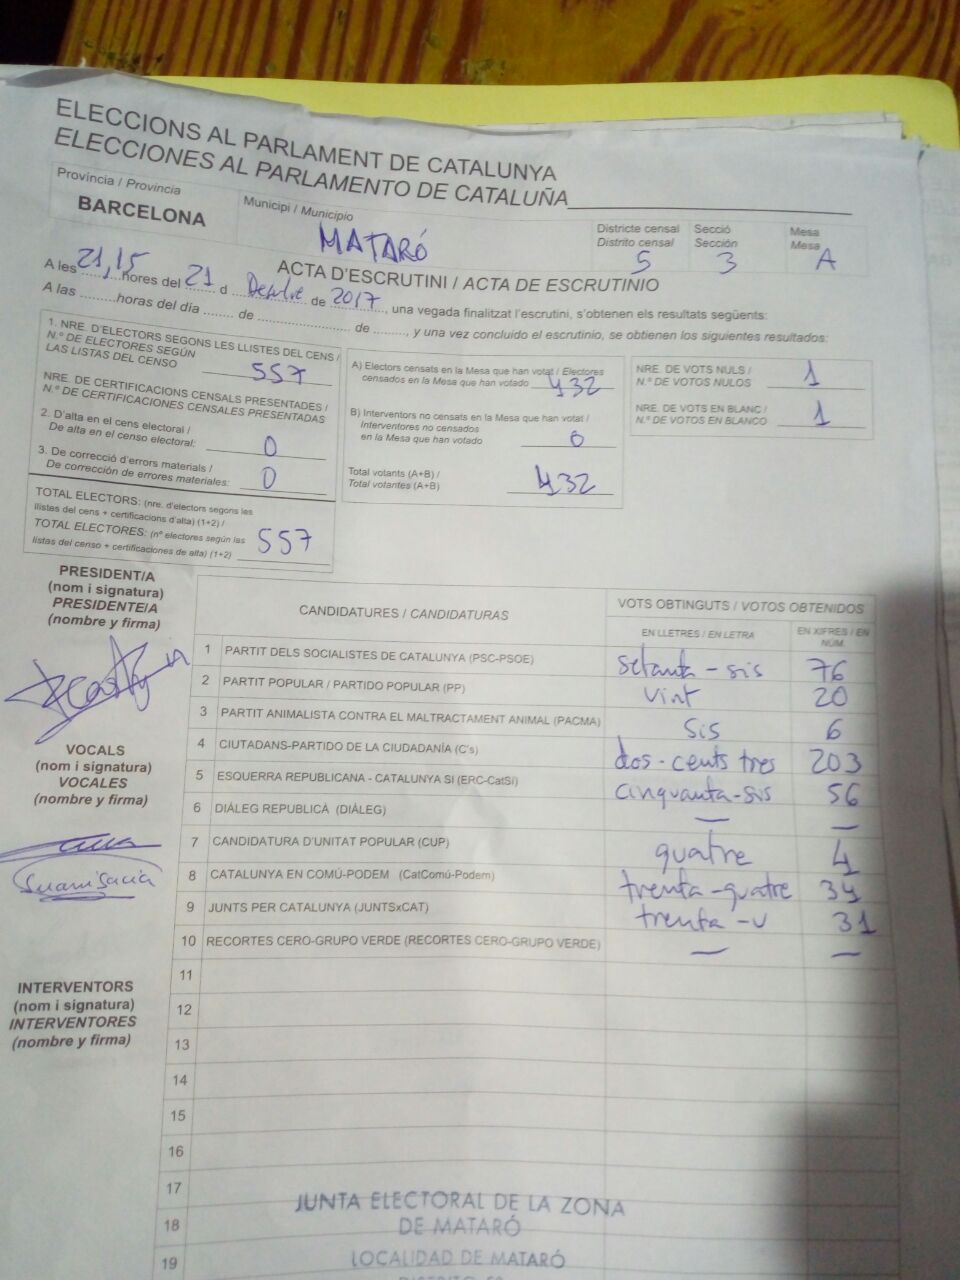 ELECCIONS AL PARLAMENT DE CATALUNYA
ELECCIONES AL PARLAMENTO DE CATALUÑA
Província / Provincia
BARCELONA
Municipi / Municipio
MATARÓ
Districte censal
Distrito censal
5
Secció
Sección
3
Mesa
Mesa
A
ACTA D'ESCRUTINI / ACTA DE ESCRUTINIO
A les 21,15 hores del 21 d Desembre de 2017, una vegada finalitzat l'escrutini, s'obtenen els resultats següents:
A las .........horas del día ........ de ........................ de ........, y una vez concluido el escrutinio, se obtienen los siguientes resultados:
1. NRE. D'ELECTORS SEGONS LES LLISTES DEL CENS /
N.º DE ELECTORES SEGÚN
LAS LISTAS DEL CENSO
557
NRE. DE CERTIFICACIONS CENSALS PRESENTADES /
N.º DE CERTIFICACIONES CENSALES PRESENTADAS
2. D'alta en el cens electoral /
De alta en el censo electoral:
0
3. De correcció d'errors materials /
De corrección de errores materiales:
0
TOTAL ELECTORS: (nre. d'electors segons les
llistes del cens + certificacions d'alta) (1+2) /
TOTAL ELECTORES: (nº electores según las
listas del censo + certificaciones de alta) (1+2)
557
A) Electors censats en la Mesa que han votat / Electores
censados en la Mesa que han votado
432
B) Interventors no censats en la Mesa que han votat /
Interventores no censados
en la Mesa que han votado
0
Total votants (A+B) /
Total votantes (A+B)
432
NRE. DE VOTS NULS /
N.º DE VOTOS NULOS
1
NRE. DE VOTS EN BLANC /
N.º DE VOTOS EN BLANCO
1
PRESIDENT/A
(nom i signatura)
PRESIDENTE/A
(nombre y firma)
VOCALS
(nom i signatura)
VOCALES
(nombre y firma)
INTERVENTORS
(nom i signatura)
INTERVENTORES
(nombre y firma)
CANDIDATURES / CANDIDATURAS
VOTS OBTINGUTS / VOTOS OBTENIDOS
EN LLETRES / EN LETRA
EN XIFRES / EN
NÚM.
1 PARTIT DELS SOCIALISTES DE CATALUNYA (PSC-PSOE) setanta-sis 76
2 PARTIT POPULAR / PARTIDO POPULAR (PP) vint 20
3 PARTIT ANIMALISTA CONTRA EL MALTRACTAMENT ANIMAL (PACMA) sis 6
4 CIUTADANS-PARTIDO DE LA CIUDADANÍA (C's) dos-cents tres 203
5 ESQUERRA REPUBLICANA - CATALUNYA SI (ERC-CatSí) cinquanta-sis 56
6 DIÀLEG REPUBLICÀ (DIÀLEG) — —
7 CANDIDATURA D'UNITAT POPULAR (CUP) quatre 4
8 CATALUNYA EN COMÚ-PODEM (CatComú-Podem) trenta-quatre 34
9 JUNTS PER CATALUNYA (JUNTSxCAT) trenta-u 31
10 RECORTES CERO-GRUPO VERDE (RECORTES CERO-GRUPO VERDE) — —
11
12
13
14
15
16
17
18
19
JUNTA ELECTORAL DE LA ZONA
DE MATARÓ
LOCALIDAD DE MATARÓ